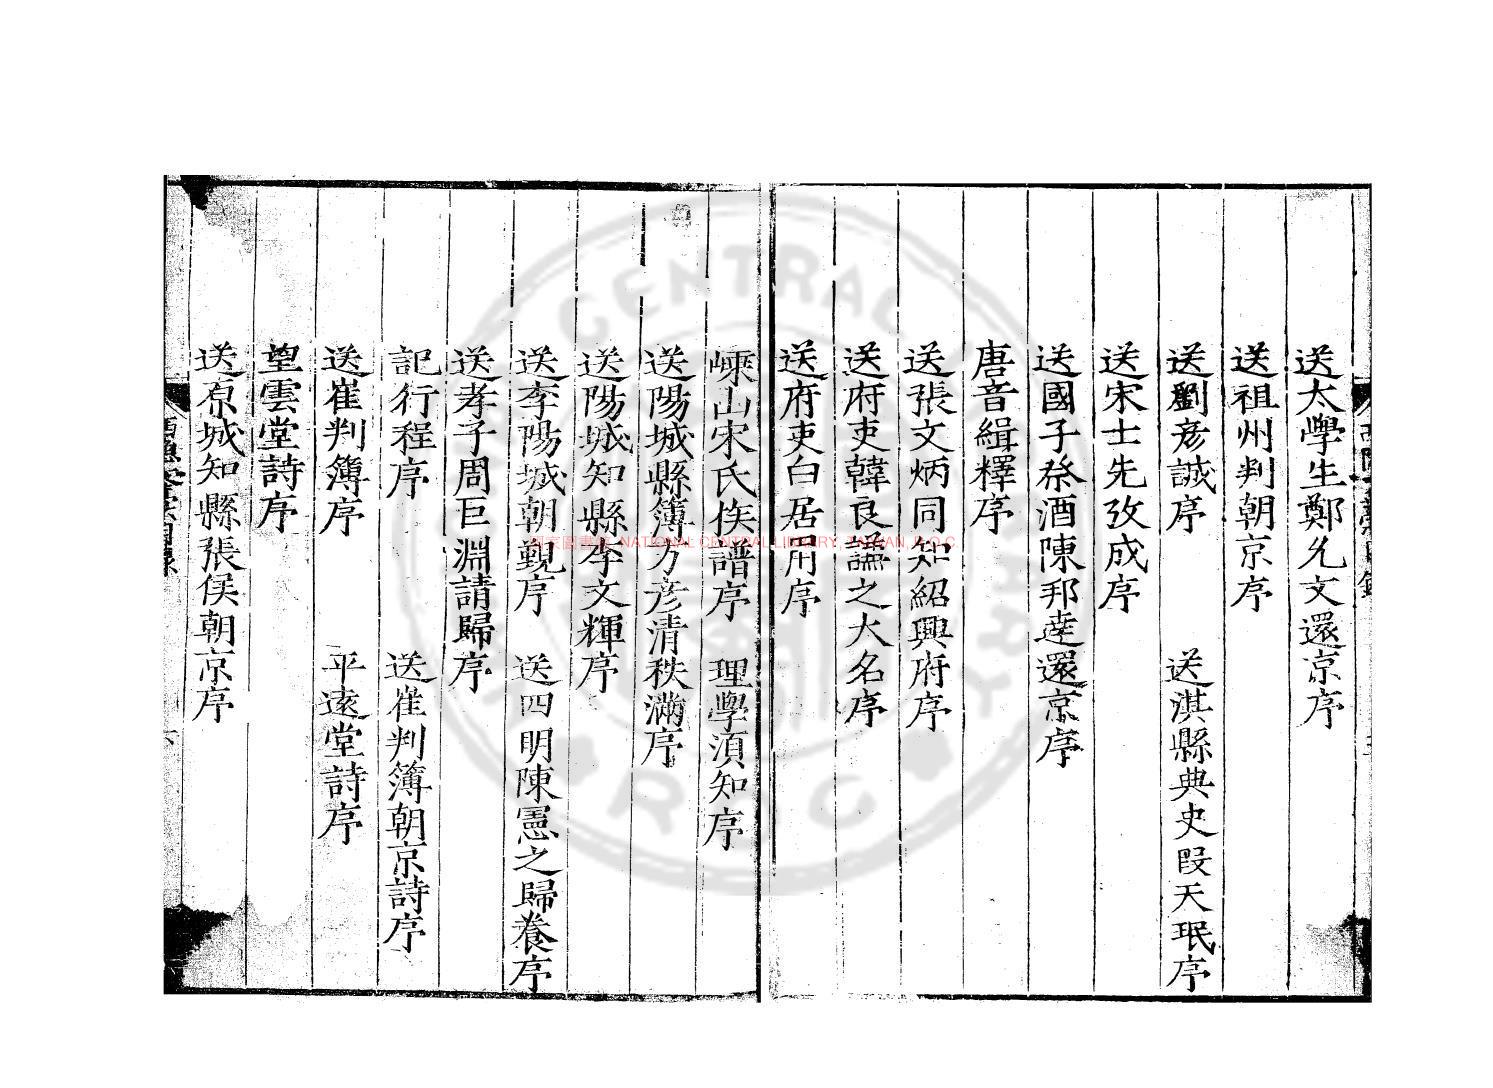 送太學生鄭允文還京序
送祖州判朝京序
送劉彥誠序　送淇縣典史叚天珉序
送宋士先攷成序
送國子祭酒陳邦達還京序
唐音緝釋序
送張文炳同知紹興府序
送府吏韓良謙之大名序
送府吏白居用序
嵊山宋氏族譜序　理學須知序
送陽城縣簿方彥清秩滿序
送陽城知縣李文輝序
送李陽城朝覲序　送四明陳憲之歸養序
送孝子周巨淵請歸序
記行程序　送崔判簿朝京詩序
送崔判簿序　平遠堂詩序
望雲堂詩序
送原城知縣張侯朝京序
NATIONAL CENTRAL LIBRARY, TAIWAN, R.O.C.
CENTRAL LIBRARY
ROC